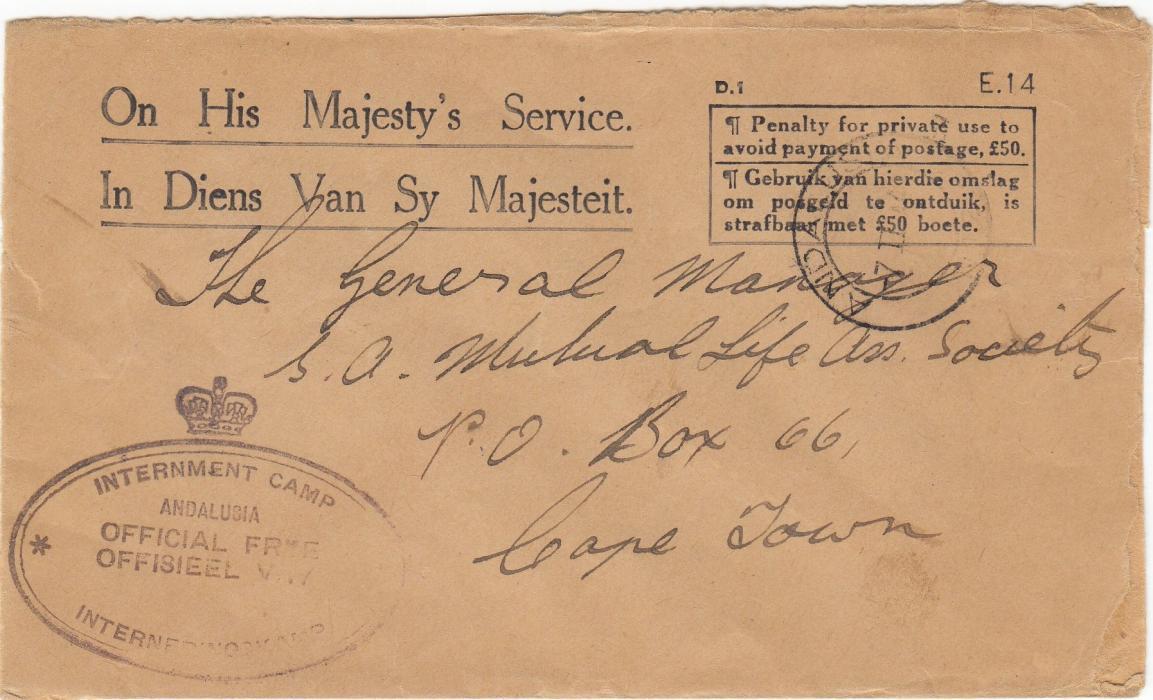 On His Majesty's Service.
In Diens Van Sy Majesteit.
D.1 E.14
¶ Penalty for private use to
avoid payment of postage, £50.
¶ Gebruik van hierdie omslag
om posgeld te ontduik, is
strafbaar met £50 boete.
The General Manager
S. A. Mutual Life Ass. Society
P. O. Box 66,
Cape Town
INTERNMENT CAMP
ANDALUSIA
OFFICIAL FREE
OFFISIEEL
INTERNERINGSKAMP